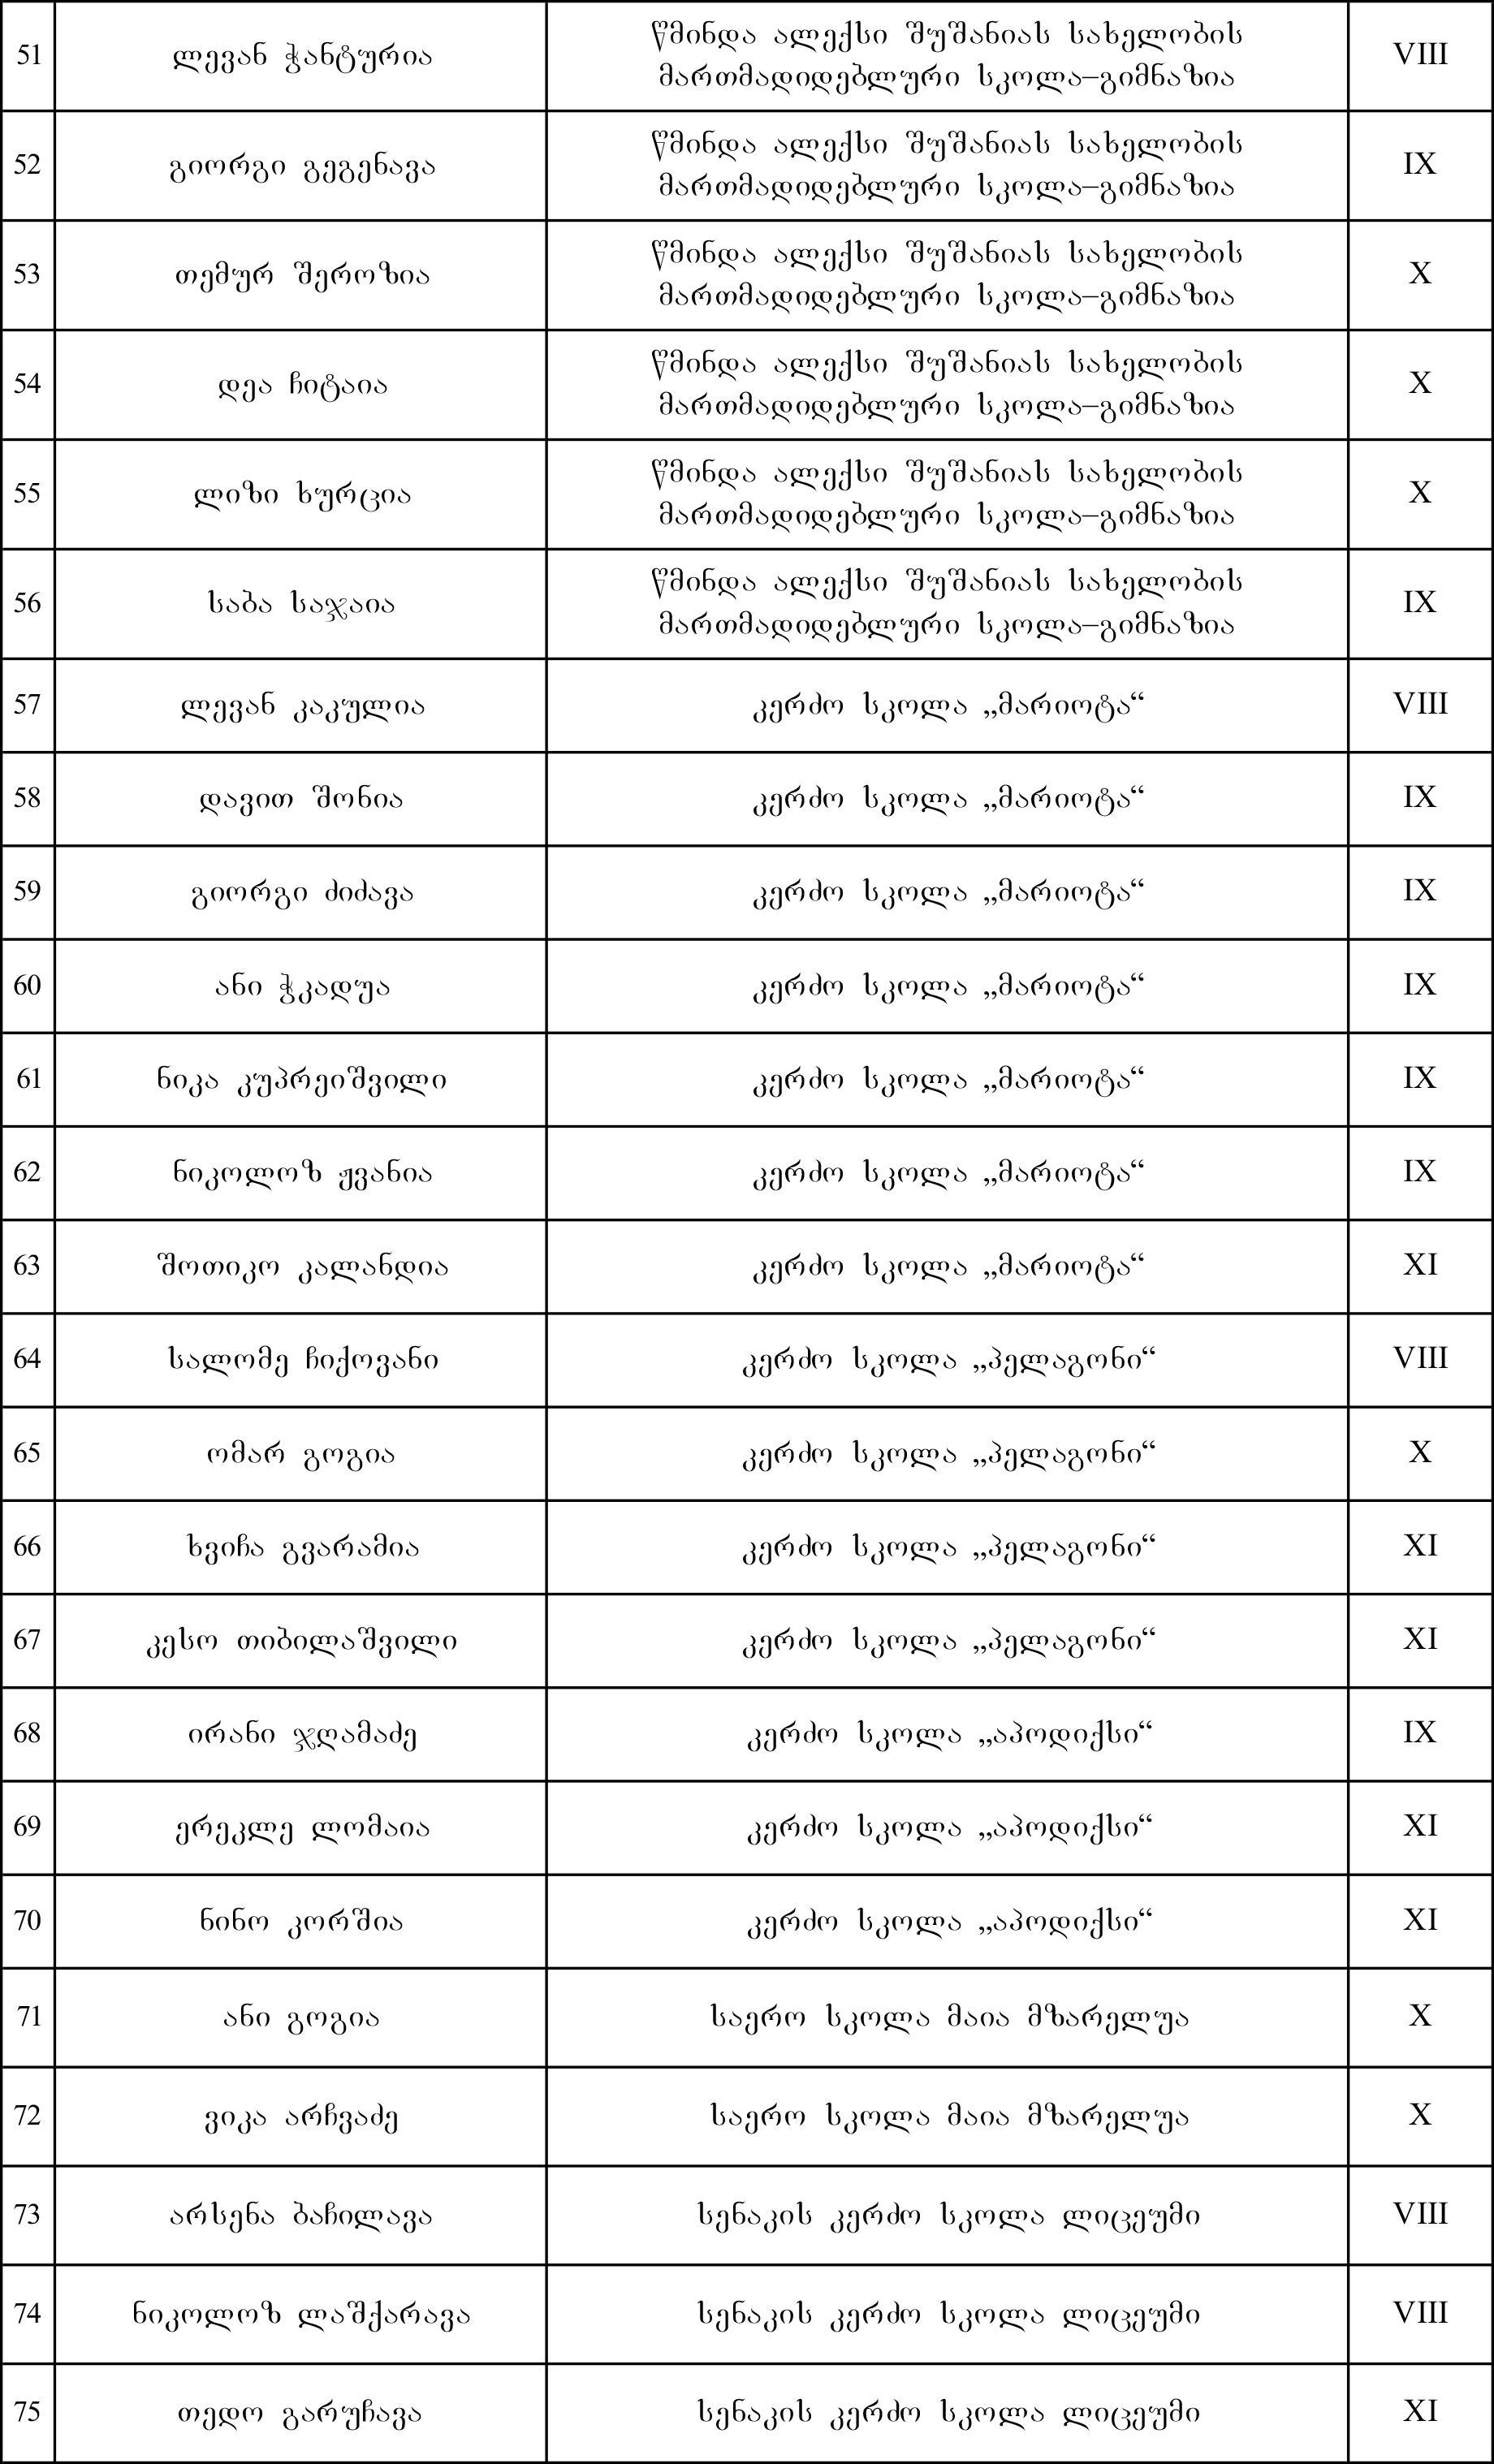 51 ლევან ჭანტურია წმინდა ალექსი შუშანიას სახელობის VIII
მართმადიდებლური სკოლა–გიმნაზია
52 გიორგი გეგენავა წმინდა ალექსი შუშანიას სახელობის IX
მართმადიდებლური სკოლა–გიმნაზია
53 თემურ შეროზია წმინდა ალექსი შუშანიას სახელობის X
მართმადიდებლური სკოლა–გიმნაზია
54 დეა ჩიტაია წმინდა ალექსი შუშანიას სახელობის X
მართმადიდებლური სკოლა–გიმნაზია
55 ლიზი ხურცია წმინდა ალექსი შუშანიას სახელობის X
მართმადიდებლური სკოლა–გიმნაზია
56 საბა საჯაია წმინდა ალექსი შუშანიას სახელობის IX
მართმადიდებლური სკოლა–გიმნაზია
57 ლევან კაკულია კერძო სკოლა „მარიოტა“ VIII
58 დავით შონია კერძო სკოლა „მარიოტა“ IX
59 გიორგი ძიძავა კერძო სკოლა „მარიოტა“ IX
60 ანი ჭკადუა კერძო სკოლა „მარიოტა“ IX
61 ნიკა კუპრეიშვილი კერძო სკოლა „მარიოტა“ IX
62 ნიკოლოზ ჟვანია კერძო სკოლა „მარიოტა“ IX
63 შოთიკო კალანდია კერძო სკოლა „მარიოტა“ XI
64 სალომე ჩიქოვანი კერძო სკოლა „პელაგონი“ VIII
65 ომარ გოგია კერძო სკოლა „პელაგონი“ X
66 ხვიჩა გვარამია კერძო სკოლა „პელაგონი“ XI
67 კესო თიბილაშვილი კერძო სკოლა „პელაგონი“ XI
68 ირანი ჯღამაძე კერძო სკოლა „აპოდიქსი“ IX
69 ერეკლე ლომაია კერძო სკოლა „აპოდიქსი“ XI
70 ნინო კორშია კერძო სკოლა „აპოდიქსი“ XI
71 ანი გოგია საერო სკოლა მაია მზარელუა X
72 ვიკა არჩვაძე საერო სკოლა მაია მზარელუა X
73 არსენა ბაჩილავა სენაკის კერძო სკოლა ლიცეუმი VIII
74 ნიკოლოზ ლაშქარავა სენაკის კერძო სკოლა ლიცეუმი VIII
75 თედო გარუჩავა სენაკის კერძო სკოლა ლიცეუმი XI